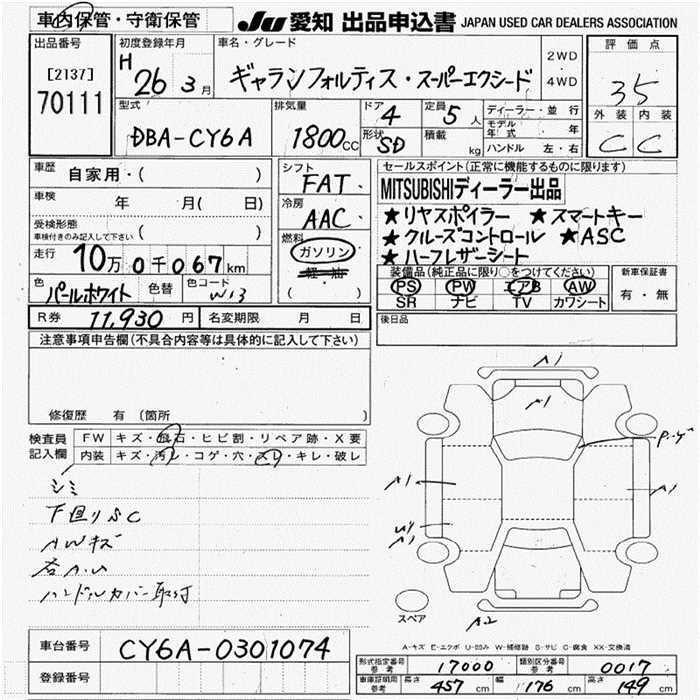 車内保管・守衛保管
JU 愛知 出品申込書 JAPAN USED CAR DEALERS ASSOCIATION
出品番号
[2137]
70111
初度登録年月
H 26 3月
車名・グレード
ギャランフォルティス・スーパーエクシード
2WD
4WD
評価点
35
外装 内装
C C
型式
DBA-CY6A
排気量
1800cc
ドア 4
形状 SD
定員 5人
積載 kg
ディーラー・並行
モデル年式 年
ハンドル 左・右
車歴 自家用・( )
車検 年 月( 日)
受検形態
車検付きのみ記入して下さい ( )
走行 10万0千067km
色 パールホワイト 色替 色コード W13
シフト
FAT
冷房
AAC
燃料
ガソリン
軽・油
( )
セールスポイント(正常に機能するものに限ります)
MITSUBISHIディーラー出品
★リヤスポイラー ★スマートキー
★クルーズコントロール ★ASC
★ハーフレザーシート
装備品(純正品に限り○をつけてください)
PS PW エアB AW
SR ナビ TV カワシート
新車保証書
有・無
R券 11,930円 名変期限 月 日
後日品
注意事項申告欄(不具合内容等は具体的に記入して下さい)
修復歴 有(箇所 )
検査員記入欄
FW キズ・飛石・ヒビ割・リペア跡・X要
内装 キズ・汚レ・コゲ・穴・スレ・キレ・破レ
シミ
下回りSC
AWキズ
ハンドルカバー取付
A1
A1
A1
A1
A1
A2
スペア
A-キズ E-エクボ U-凹み W-補修跡 S-サビ C-腐食 XX-交換済
車台番号 CY6A-0301074
登録番号
形式指定番号 参考 17000 類別区分番号 参考 0017
車庫証明用 参考 長さ 457cm 幅 176cm 高さ 149cm